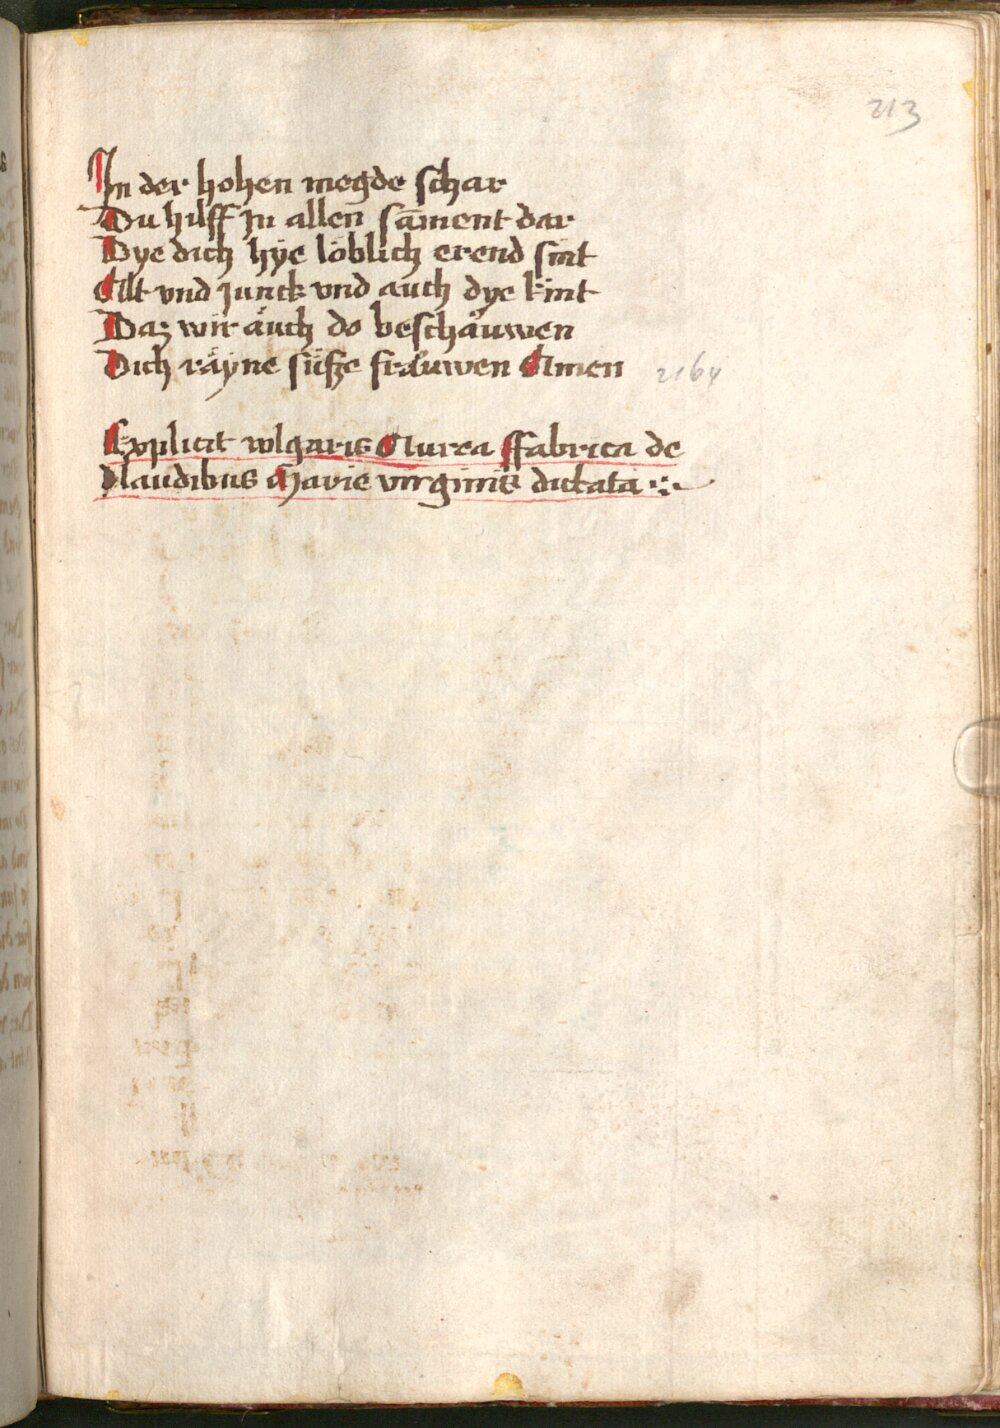 213
In der hohen megde schar
Du hilff zu allen sāment dar
Dye dich hÿe löblich erend sint
Alt vnd junck vnd auch dye kint
Daz wir auch do beschauwen
Dich räyne süsze frauwen Amen
2164
Explicit wlgaris Aurea ffabrica de
laudibus Marie virginis dictata